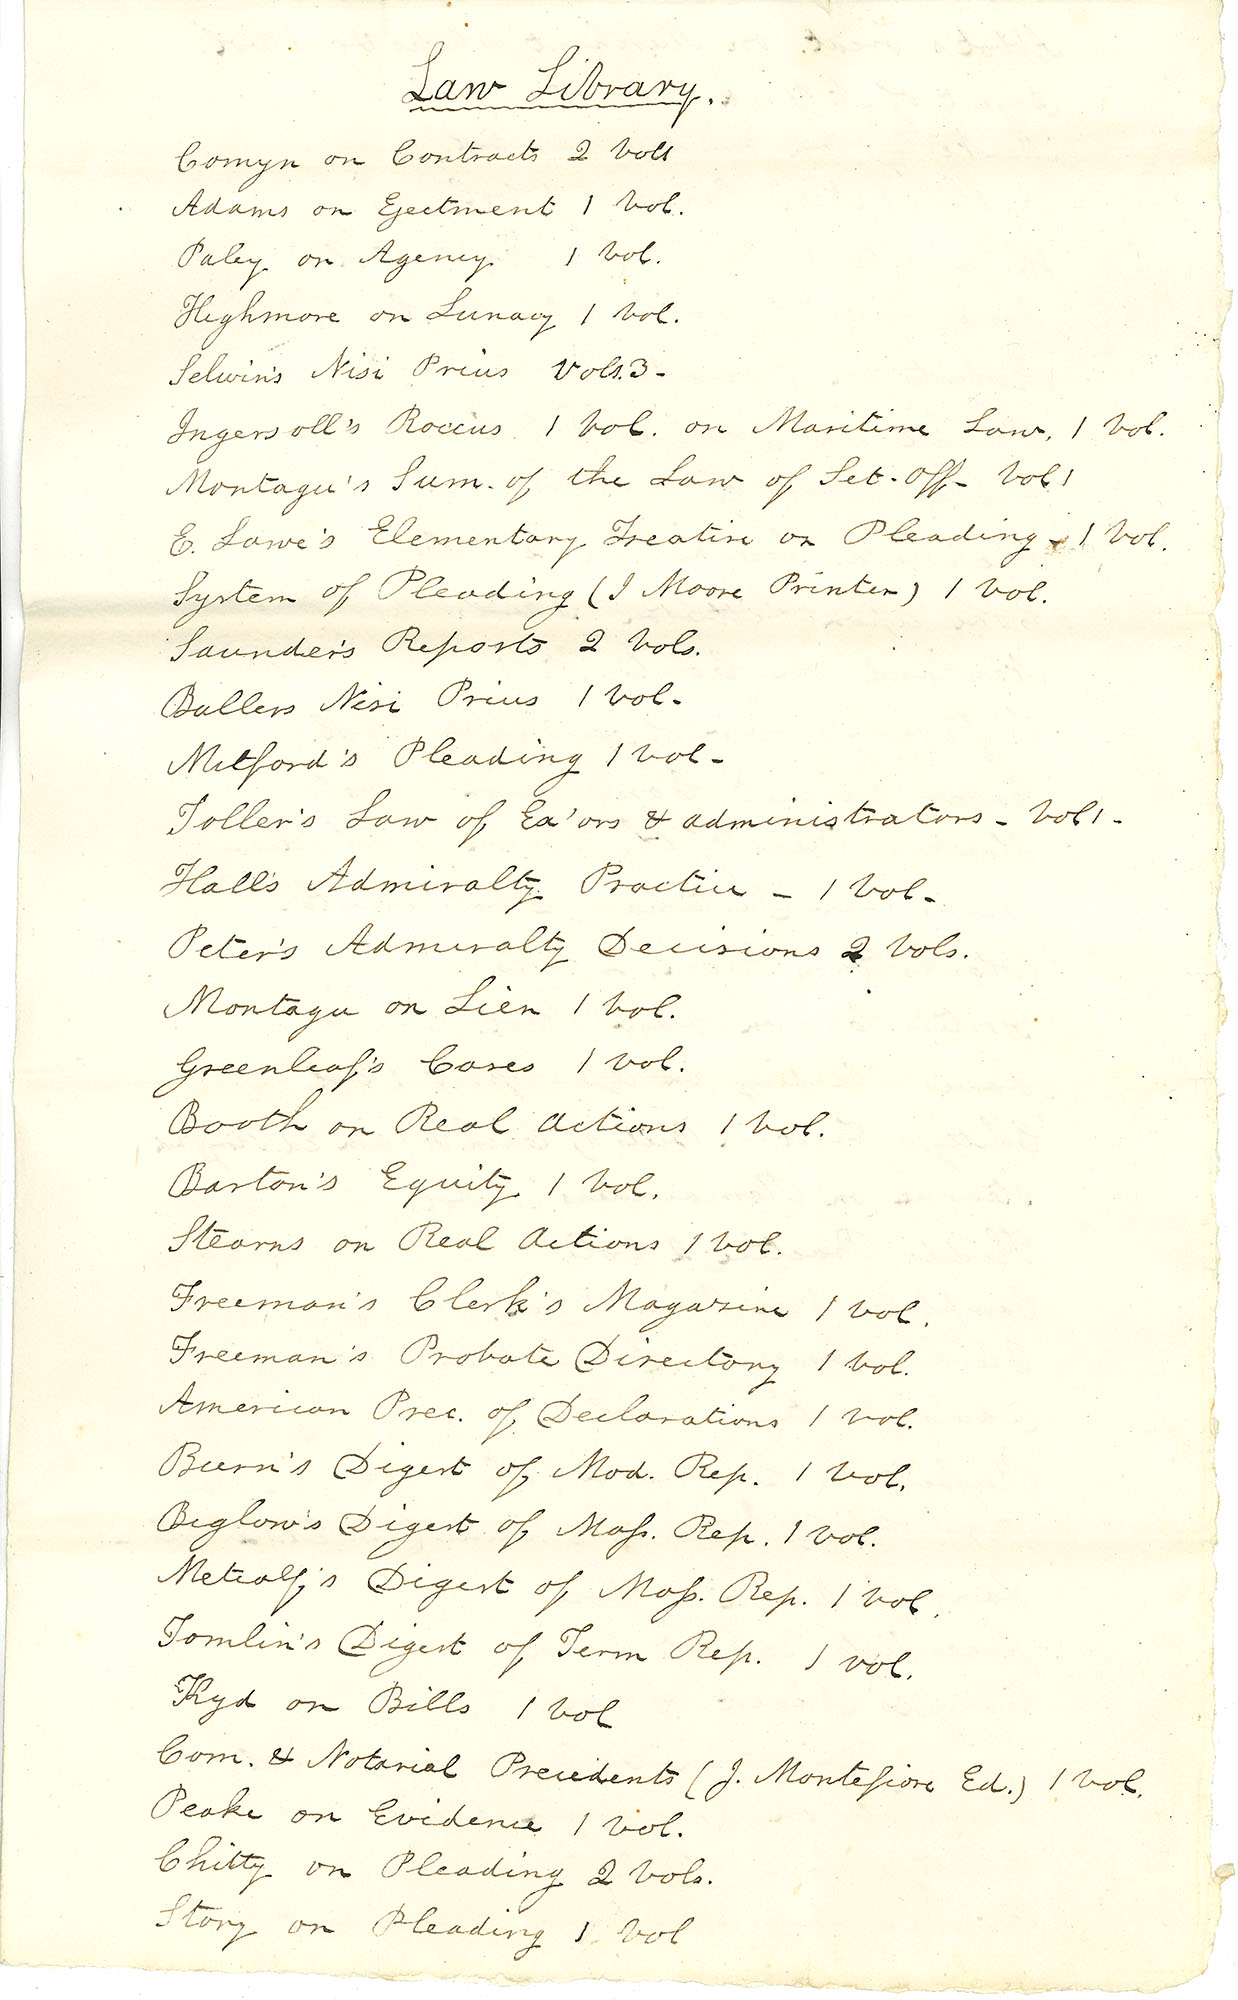 Law Library.
Comyn on Contracts 2 Vols
Adams on Ejectment 1 Vol.
Paley on Agency 1 Vol.
Highmore on Lunacy 1 Vol.
Selwin's Nisi Prius Vols. 3-
Ingersoll's Roccus 1 Vol. on Maritime Law, 1 Vol.
Montagu's Sum. of the Law of Set-Off- Vol 1
E. Lawe's Elementary Treatise on Pleading - 1 Vol.
System of Pleading (J Moore Printer) 1 Vol.
Saunder's Reports 2 Vols.
Bullers Nisi Prius 1 Vol-
Mitford's Pleading 1 Vol-
Toller's Law of Ex'ors & administrators - Vol 1-
Hall's Admiralty Practice - 1 Vol-
Peter's Admiralty Decisions 2 Vols.
Montagu on Lien 1 Vol.
Greenleaf's Cases 1 Vol.
Booth on Real Actions 1 Vol.
Barton's Equity 1 Vol.
Stearns on Real Actions 1 Vol.
Freeman's Clerk's Magazine 1 Vol.
Freeman's Probate Directory 1 Vol.
American Prec. of Declarations 1 Vol.
Burn's Digest of Mod. Rep. 1 Vol.
Biglow's Digest of Mass. Rep. 1 Vol.
Metcalf's Digest of Mass. Rep. 1 Vol.
Tomlin's Digest of Term Rep. 1 Vol.
Kyd on Bills 1 Vol
Com. & Notarial Precedents (J. Montefiore Ed.) 1 Vol.
Peake on Evidence 1 Vol.
Chitty on Pleading 2 Vols.
Story on Pleading 1 Vol